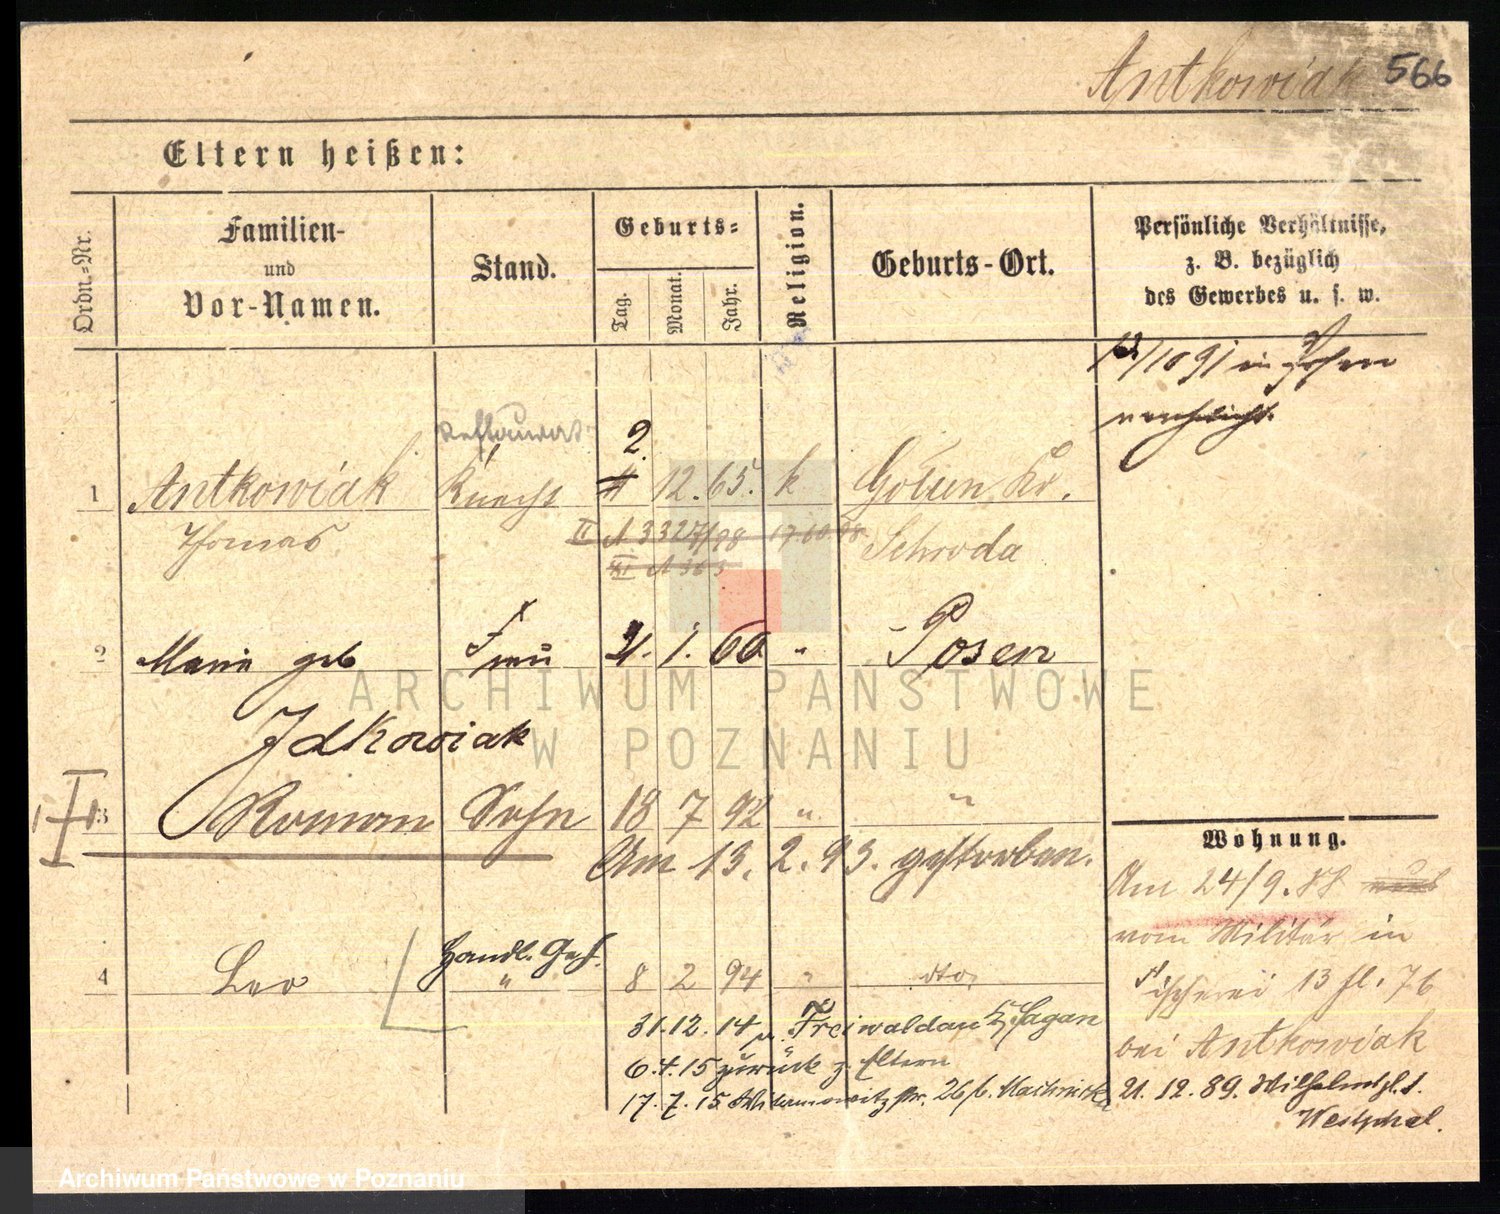 Antkowiak 566
Eltern heißen:
Ordn.-Nr.
Familien-
und
Vor-Namen.
Stand.
Geburts-
Tag.
Monat.
Jahr.
Religion.
Geburts-Ort.
Persönliche Verhältnisse,
z. B. bezüglich
des Gewerbes u. s. w.
10 91 in Posen
Restaurat
2.
1 Antkowiak Knecht 4 12. 65. k Gółun, Kr.
Thomas Schroda
II A 3327/98
III A 363
2 Marie geb Frau 21. 1. 60 " Posen
Idkowiak
3 Roman Sohn 18 7 92 " "
Am 13. 2. 93. gestorben.
Wohnung.
Am 24/9. 88
vom Militär in
Fischerei 13 fl. 76
bei Antkowiak
21. 12. 89. Wilhelmspl. 1.
Westphal.
Handl. Geh.
4 Leo " 8 2 94 " dto,
31. 12. 14 n. Freiwaldau Sagan
6. 4. 15 zurück z. Eltern
17. 7. 15 26 b.
ARCHIWUM PAŃSTWOWE
W POZNANIU
Archiwum Państwowe w Poznaniu